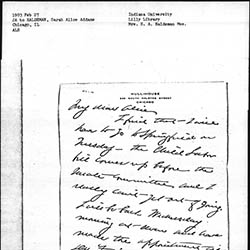 1893 Feb 23
JA to HALDEMAN, Sarah Alice Addams
Chicago, IL
ALS
Indiana University
Lilly Library
Mrs. S. A. Haldeman Mss.
HULL-HOUSE
335 SOUTH HALSTED STREET
CHICAGO
My dear Alice
I find that I will
have to go to Springfield on
Tuesday - the Child Labor
bill comes up before the
Senate Committee and I
really can't get out of going.
I will be back Wednesday
morning at
made the appointment